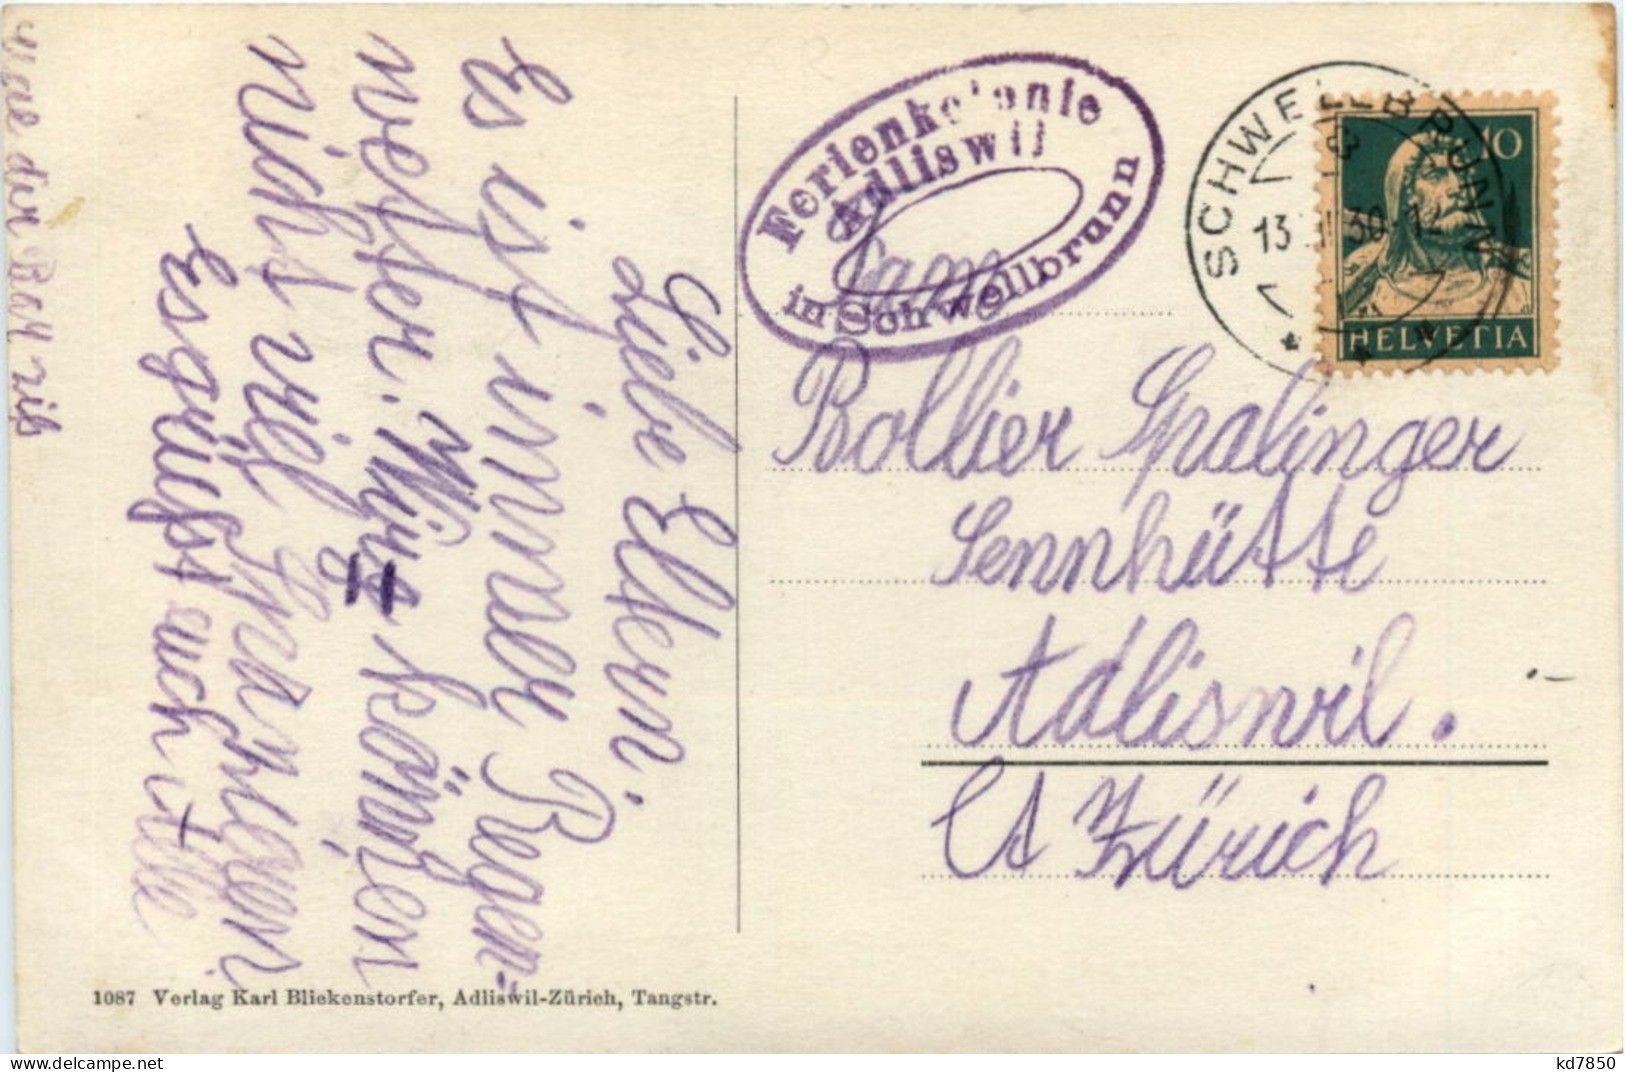 Liebe Eltern,
Es ist immer Regen-
wetter. Wir können
nicht viel spazieren
Es grüsst euch alle
Ferienkolonie
Adliswil
in Schwellbrunn
SCHWELLBRUNN
13
30
10
HELVETIA
Bollier Spalinger
Sennhütte
Adliswil.
Ct Zürich
1087 Verlag Karl Bliekenstorfer, Adliswil-Zürich, Tangstr.
kd7850